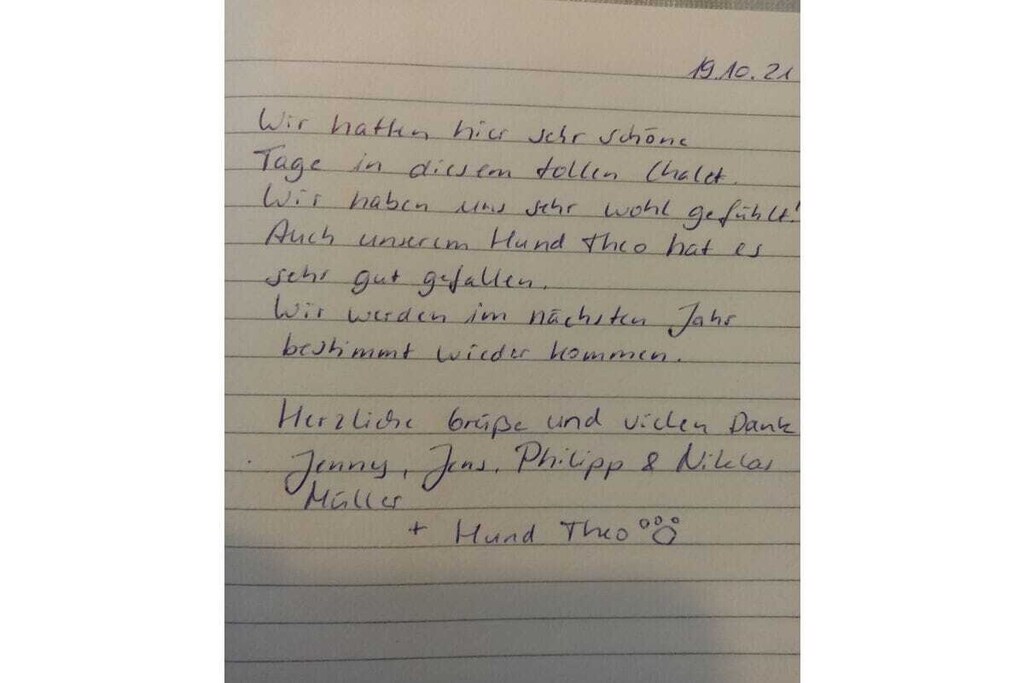 19.10.21
Wir hatten hier sehr schöne
Tage in diesem tollen Chalet.
Wir haben uns sehr wohl gefühlt!
Auch unserem Hund Theo hat es
sehr gut gefallen.
Wir werden im nächsten Jahr
bestimmt wieder kommen.
Herzliche Grüße und vielen Dank
Jenny, Jens, Philipp & Niklas
Müller
+ Hund Theo